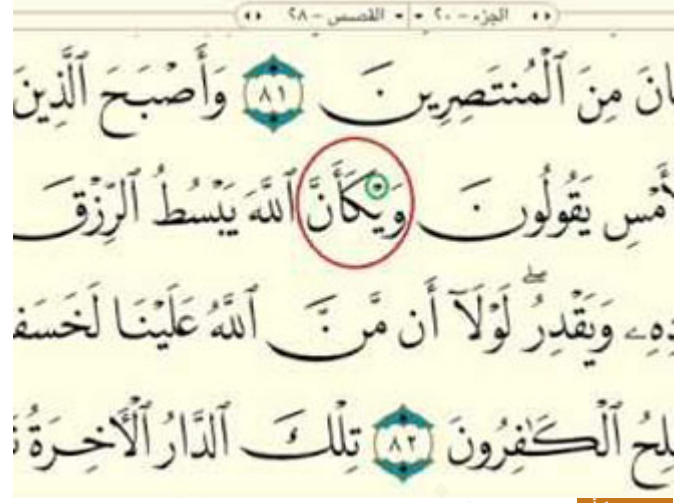 الجزء - ٢٠ القصص - ٢٨
انَ مِنَ ٱلْمُنتَصِرِينَ ٨١ وَأَصْبَحَ ٱلَّذِينَ
لْأَمْسِ يَقُولُونَ وَيْكَأَنَّ ٱللَّهَ يَبْسُطُ ٱلرِّزْقَ
دِهِۦ وَيَقْدِرُۖ لَوْلَآ أَن مَّنَّ ٱللَّهُ عَلَيْنَا لَخَسَفَ
لِحُ ٱلْكَـٰفِرُونَ ٨٢ تِلْكَ ٱلدَّارُ ٱلْأَخِرَةُ